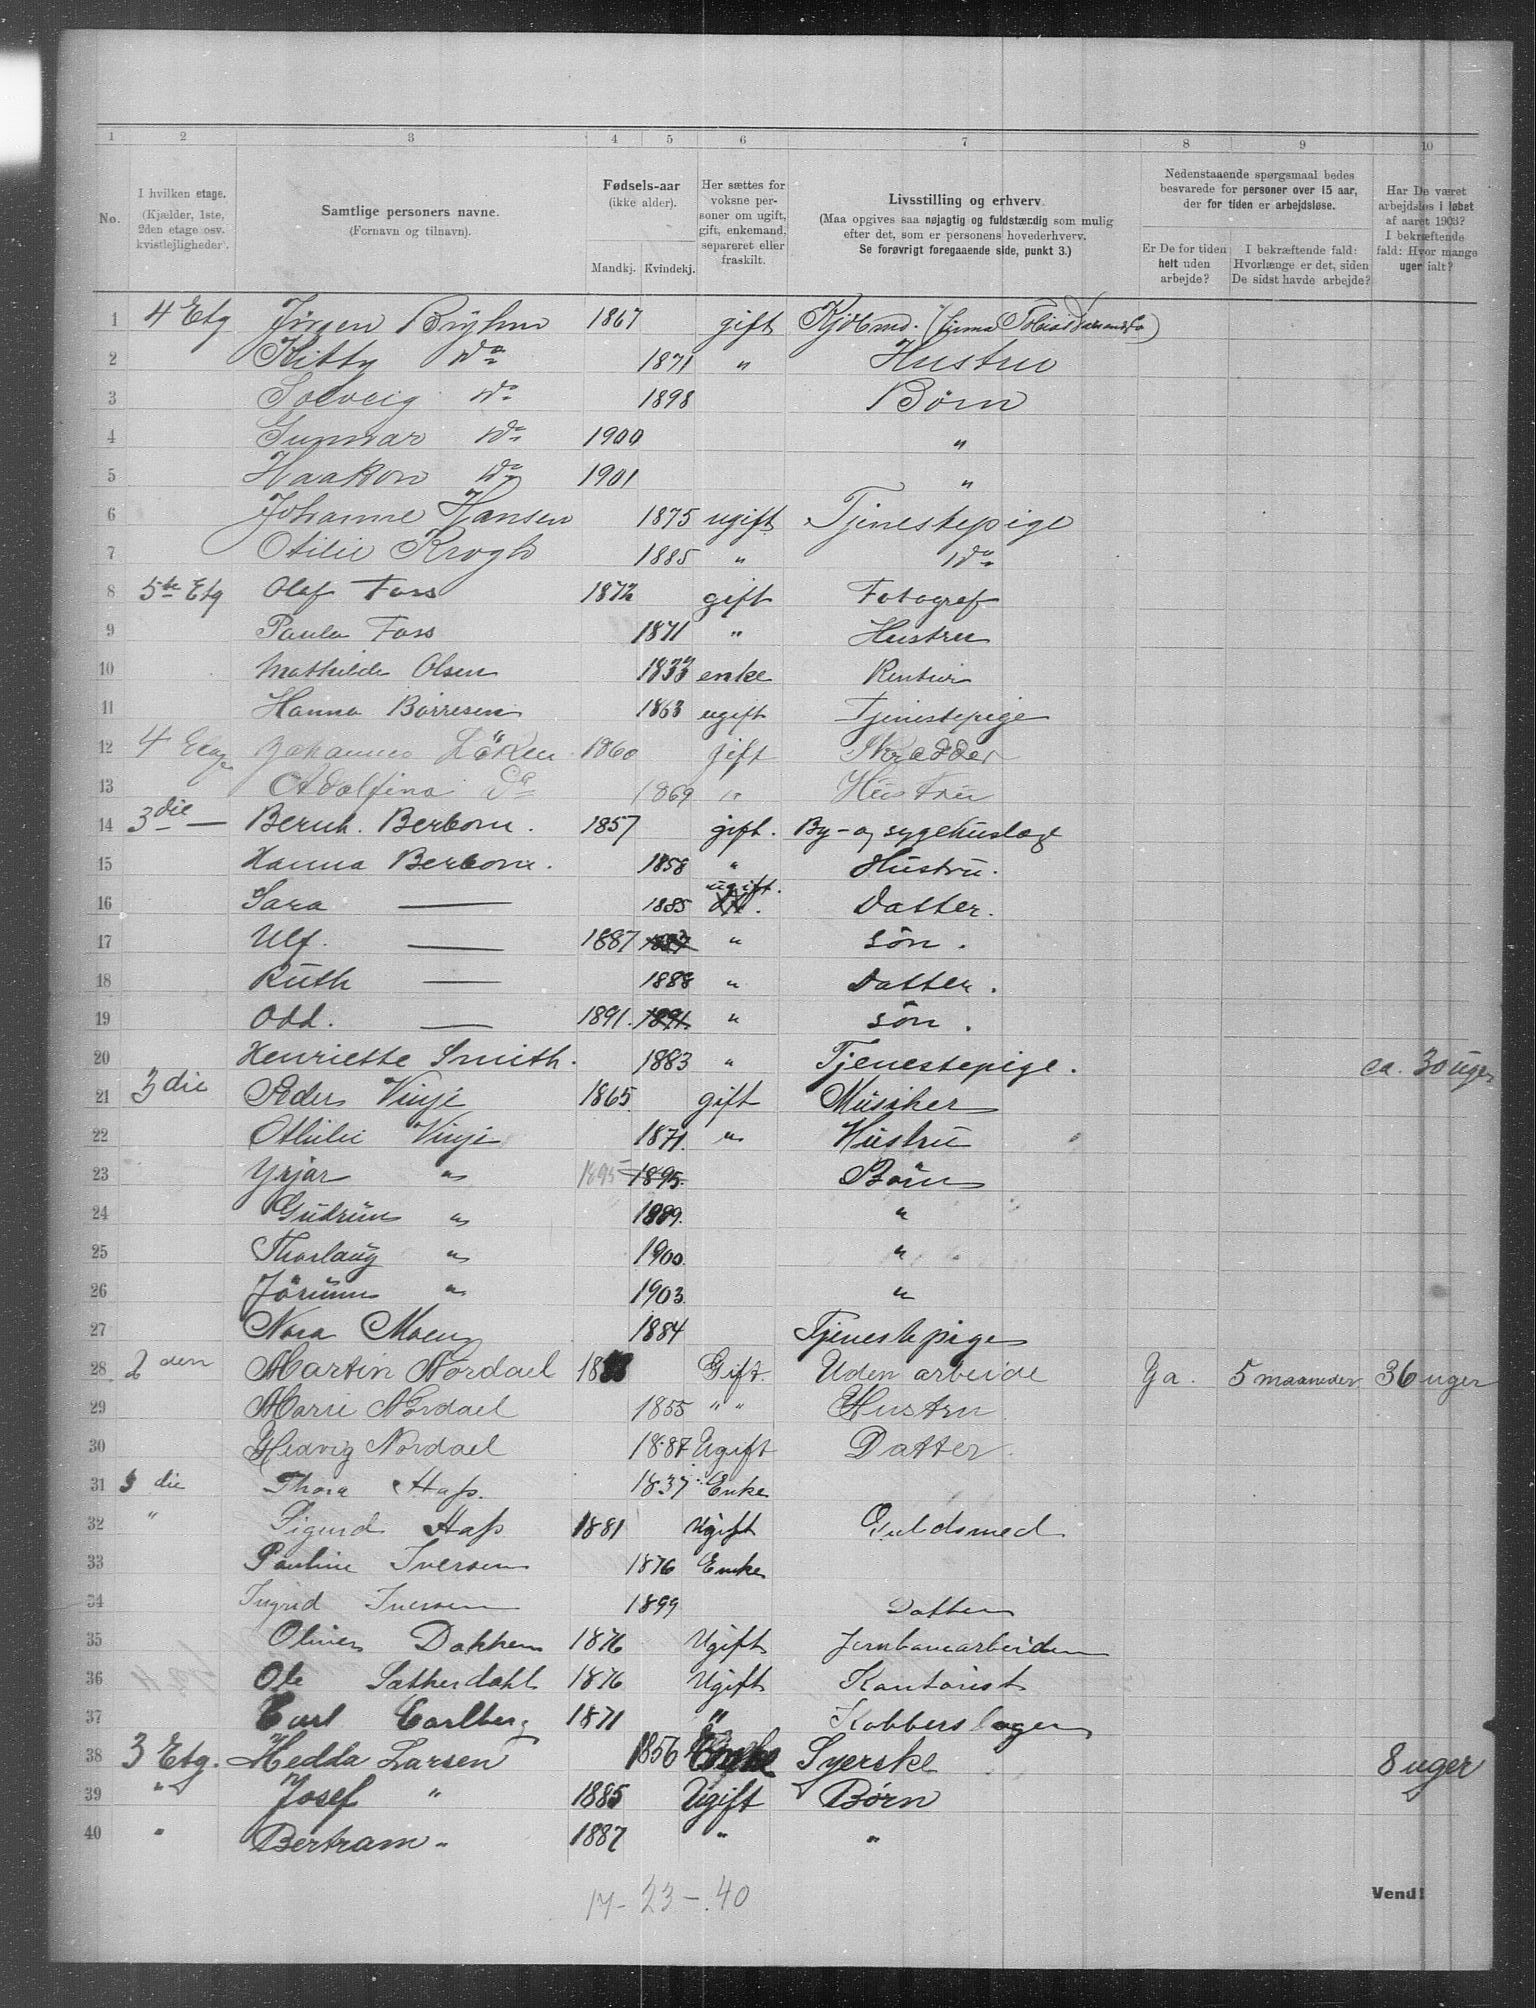 1 2 3 4 5 6 7 8 9 10
No.
I hvilken etage. (Kjælder, 1ste, 2den etage osv. kvistlejligheder).
Samtlige personers navne. (Fornavn og tilnavn).
Fødsels-aar (ikke alder).
Mandkj. Kvindekj.
Her sættes for voksne personer om ugift, gift, enkemand, separeret eller fraskilt.
Livsstilling og erhverv.
(Maa opgives saa nøjagtig og fuldstændig som mulig efter det, som er personens hovederhverv.
Se forøvrigt foregaaende side, punkt 3.)
Nedenstaaende spørgsmaal bedes besvarede for personer over 15 aar, der for tiden er arbejdsløse.
Er De for tiden helt uden arbejde?
I bekræftende fald: Hvorlænge er det, siden De sidst havde arbejde?
Har De været arbejdsløs i løbet af aaret 1903? I bekræftende fald: Hvor mange uger ialt?
1 4 Etg Jörgen Bryhn 1867 gift Kjöbmd. (firma Tobias
2 Kitty Do 1871 " Hustru
3 Solveig Do 1898 Børn
4 Gunnar Do 1900 "
5 Haakon Do 1901 "
6 Johanne Hansen 1875 ugift Tjenestepige
7 Otilie Krogh 1885 " Do
8 5te Etg Olaf Foss 1872 gift Fotograf
9 Paula Foss 1871 " Hustru
10 Mathilde Olsen 1833 enke Rentier
11 Hanna Börresen 1863 ugift Tjenestepige
12 4 Etage Johannes Löken 1860 gift Skrædder
13 Adolfina Do 1869 " Hustru
14 3die — Bernh. Berbom. 1857 gift. By- og sygehuslæge
15 Hanna Berbom. 1858 " Hustru.
16 Sara — 1885 ugift. Datter.
17 Ulf. — 1887 " Sön.
18 Ruth — 1888 " Datter.
19 Odd. — 1891. 1891. " Sön.
20 Henriette Smith. 1883 " Tjenestepige. ca. 30 uger
21 3 die Peder Vinje 1865 gift Musiker
22 Othilie Vinje 1871. " Hustru
23 Yrjar " 1895 1895. Börn
24 Gudrun " 1889. "
25 Thorlaug " 1900. "
26 Jörunn " 1903. "
27 Nora Moen 1884 Tjenestepige
28 2 den Martin Nordael 18 Gift. Uden arbeide Ja. 5 maaneder 36 uger
29 Marie Nordael 1855 " " Hustru
30 Hedvig Nordael 1887 Ugift Datter.
31 3 die Thora Hass. 1837 Enke
32 " Sigurd Hass 1881 Ugift Guldsmed
33 Pauline Iversen 1876 Enke
34 Ingrid Iversen 1899 Datter
35 Oliver Dokken 1876 Ugift Jernbanearbeider
36 Ole Sætherdahl 1876 Ugift Kontorist
37 Carl Carlberg 1871 " Kobberslager
38 3 Etg. Hedda Larsen 1856 Enke Syerske 8 uger
39 " Josef " 1885 Ugift Børn
40 " Bertram " 1887 " "
17 - 23 - 40
Vend!